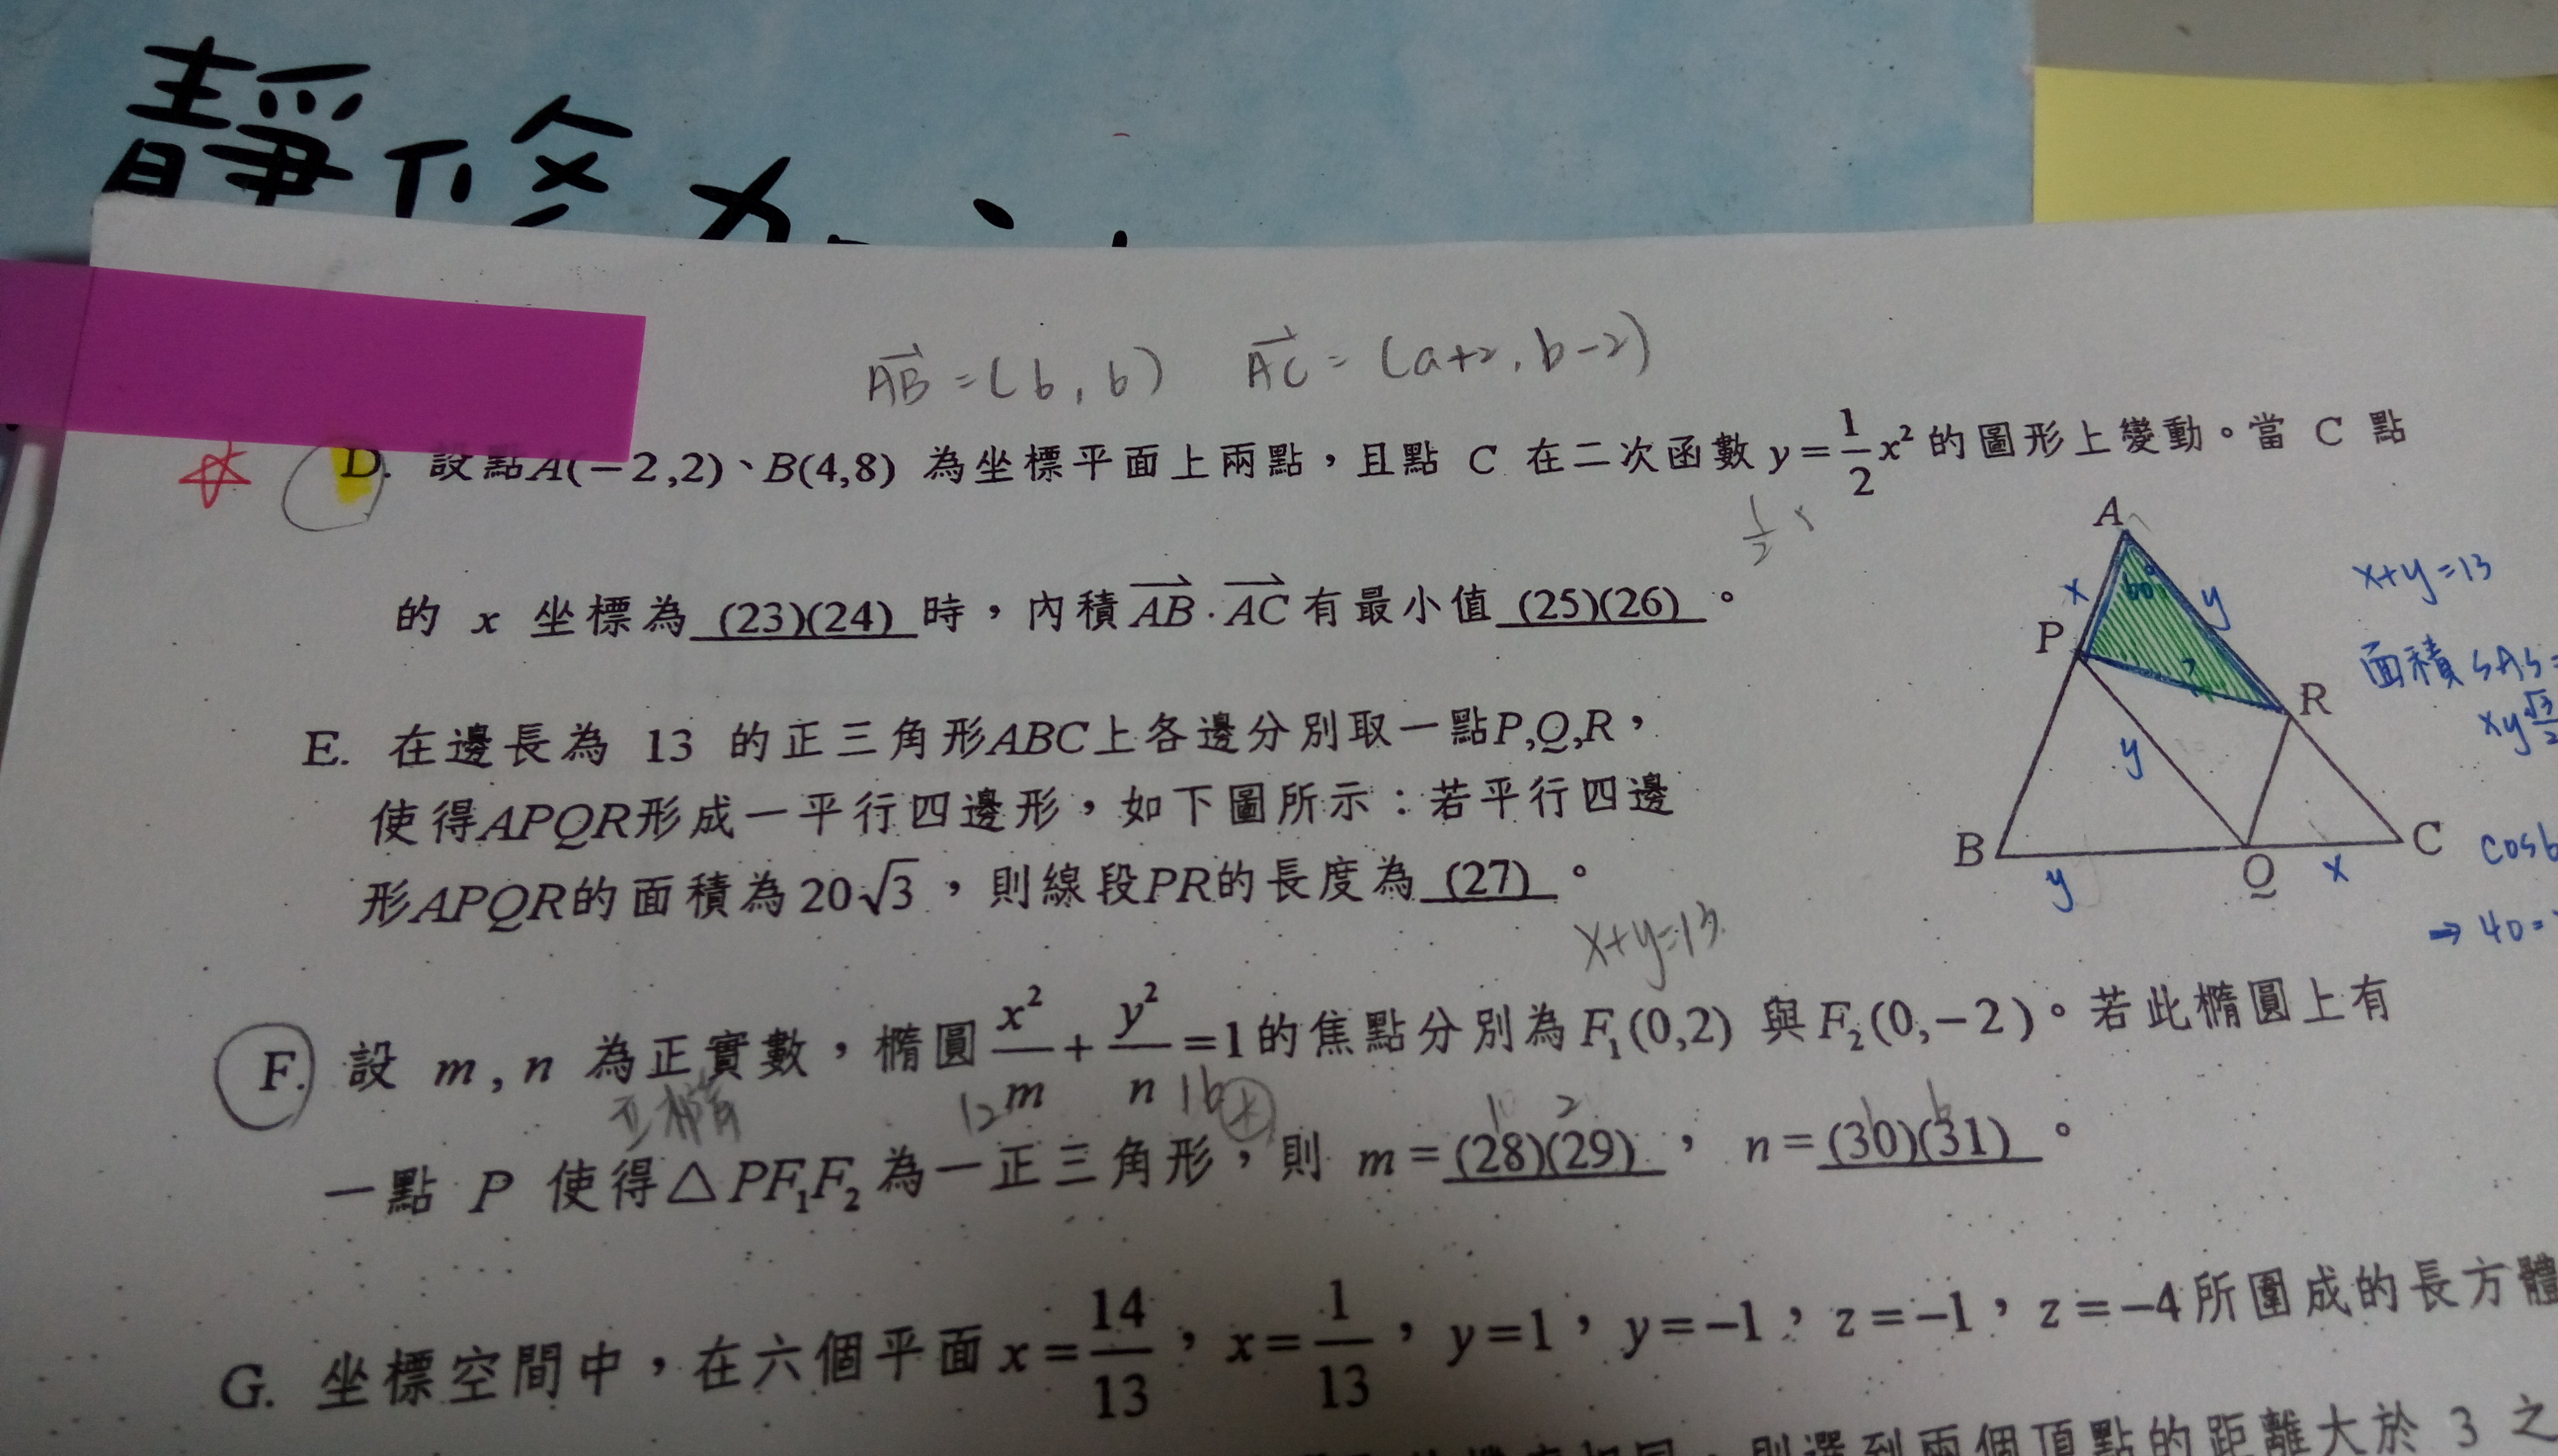 靜修
AB=(6,6) AC=(a+2,b-2)
D. 設點A(-2,2)、B(4,8) 為坐標平面上兩點,且點 C 在二次函數 y=1/2x²的圖形上變動。當 C 點
1/2 x
的 x 坐標為(23)(24)時,內積AB·AC有最小值(25)(26)。
E. 在邊長為 13 的正三角形ABC上各邊分別取一點P,Q,R,
使得APQR形成一平行四邊形,如下圖所示:若平行四邊
形APQR的面積為20√3,則線段PR的長度為(27)。
A
x 60° y
P
?
R
y
B Q C
y x
x+y=13
面積 SAS=
xy √3/2
→ 40=
x+y=13
F. 設 m,n 為正實數,橢圓x²/m+y²/n=1的焦點分別為F₁(0,2) 與F₂(0,-2)。若此橢圓上有
12 16 大 1 2 1 6
一點 P 使得△PF₁F₂為一正三角形,則 m=(28)(29), n=(30)(31)。
G. 坐標空間中,在六個平面x=14/13,x=1/13,y=1,y=-1,z=-1,z=-4所圍成的長方體
則選到兩個頂點的距離大於 3 之